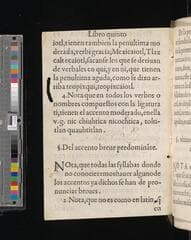 Libro quinto
iotl, tienen tambien la penultima mo
derada, verbi gratia, Mexicaiotl, Tlax
calteca iotl, sacanse los que se deriuan
de verbales en qui, y en ni, que tienen
la penultima aguda, como se dixo ar-
riba teopixqui, teopixcaiotl.
4. Notaseque en todos los verbos o
nombres compuestos con la ligatura
ti, tienen el accento moderado, en ella
v.g. nic chiuhtica nicochtica,
tlan quauhtitlan.
§. Del accento breue predominãte.
Nota, que todas las syllabas donde
no conociere mos hauer alguno de
los accentos ya dichos se han de pro-
nunciar breues.
2 Nota, que no es como en latin,